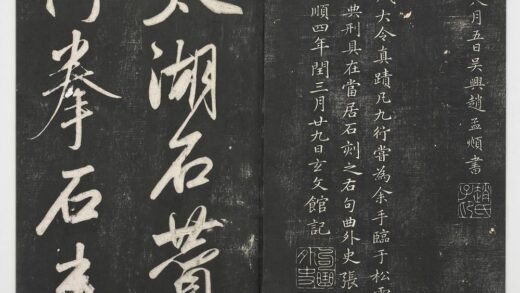 月五日吳興趙孟頫書
趙氏子昂
大令真蹟凡九行嘗為余手臨于松雪
典刑具在當居石刻之右句曲外史張
順四年閏三月廿九日玄文館記
湖石
拳石